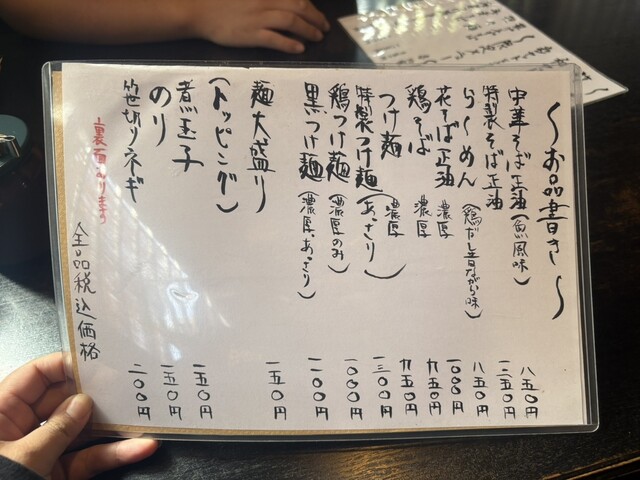 〜お品書き〜
中華そば 正油(魚風味) 八五〇円
特製そば 正油 一三五〇円
らーめん(鶏だし昔ながら味) 八五〇円
花そば 正油 濃厚 一〇〇〇円
鶏そば 濃厚 九五〇円
つけ麺 濃厚 九五〇円
特製つけ麺(あっさり) 一三〇〇円
鶏つけ麺(濃厚のみ) 一〇〇〇円
黒つけ麺(濃厚、あっさり) 一一〇〇円
麺大盛り 一五〇円
(トッピング)
煮玉子 一五〇円
のり 一五〇円
笹切りネギ 二〇〇円
裏面あります
全品税込価格